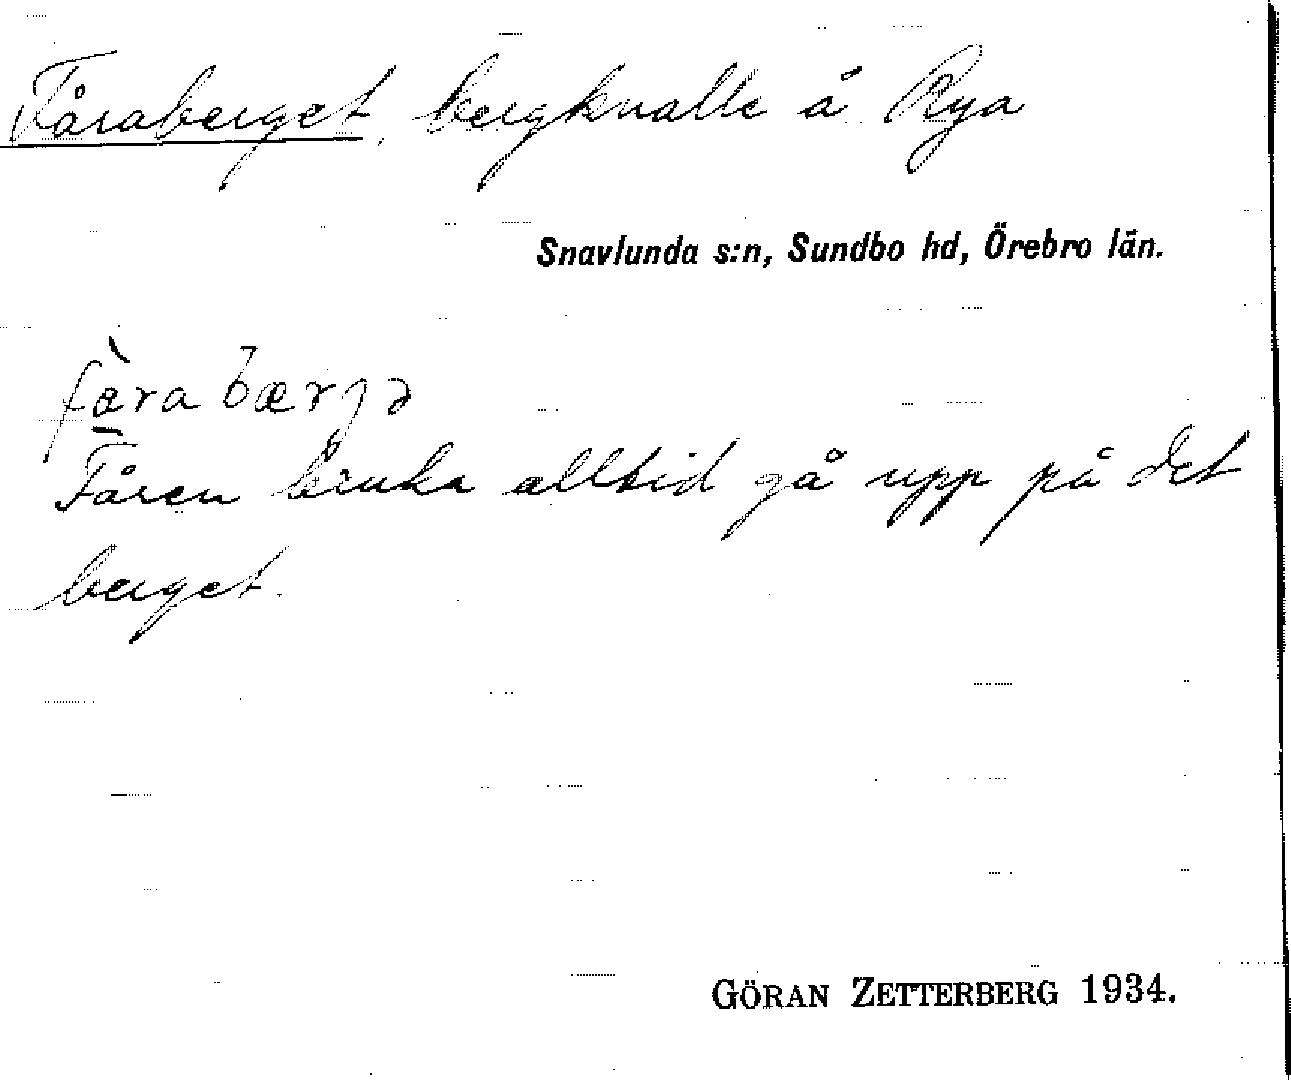 Fåraberget, bergknalle å Rya
Snavlunda s:n, Sundbo hd, Örebro län.
fǽrabærjə
Fåren bruka alltid gå upp på det
berget.
GÖRAN ZETTERBERG 1934.